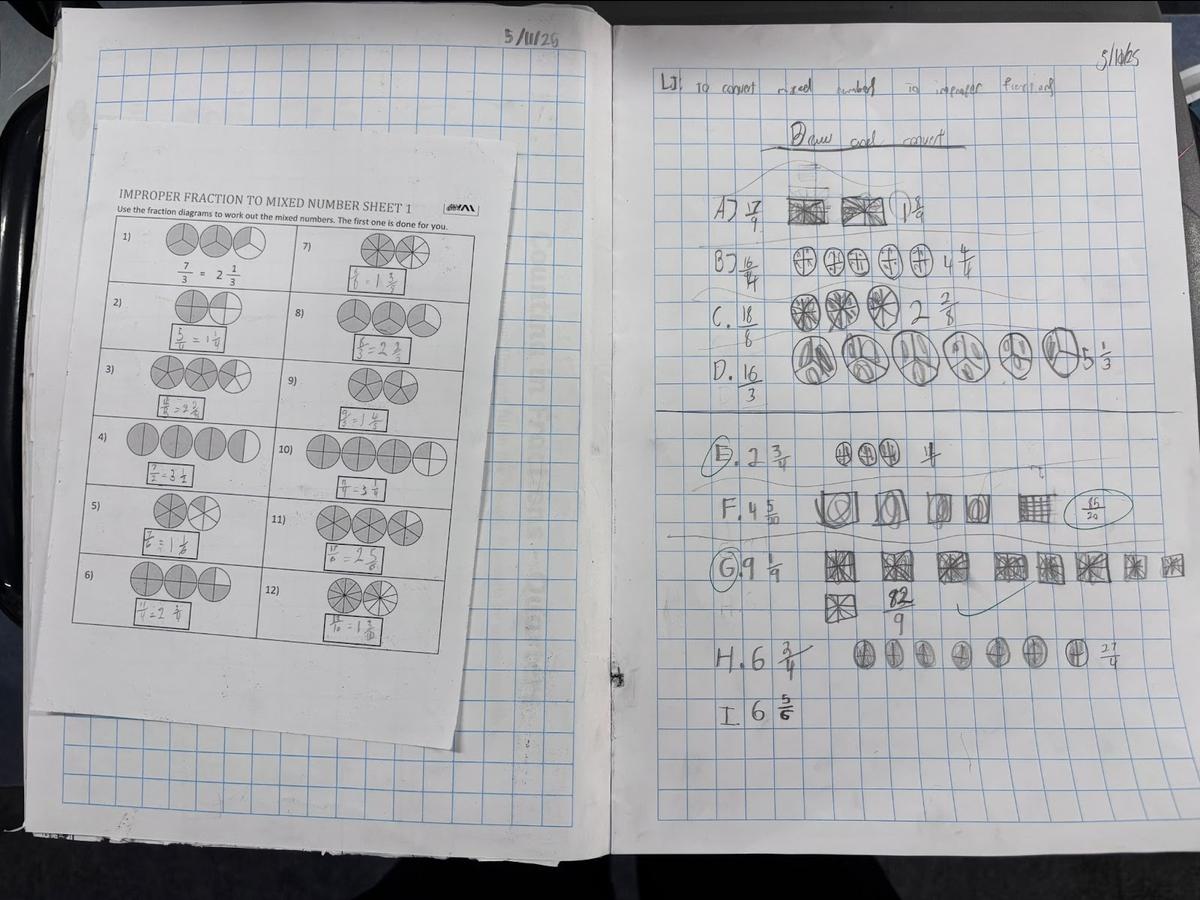 5/11/25
IMPROPER FRACTION TO MIXED NUMBER SHEET 1
Use the fraction diagrams to work out the mixed numbers. The first one is done for you.
1)
7/3 = 2 1/3
2)
5/4 = 1 1/4
3)
4)
7/2 = 3 1/2
5)
7/6 = 1 1/6
6)
11/4 = 2 3/4
7)
8)
8/3 = 2 2/3
9)
9/5 = 1 4/5
10)
= 3 1/4
11)
17/6 = 2 5/6
12)
LI: To convert mixed number to improper fractions
Draw and convert
A) 17/9 1 8/9
B) 16/4 4 4/4
C. 18/8 2 2/8
D. 16/3 5 1/3
E. 2 3/4
F. 4 5/20 85/20
G. 9 1/9
82/9
H. 6 3/4 27/4
I 6 5/6